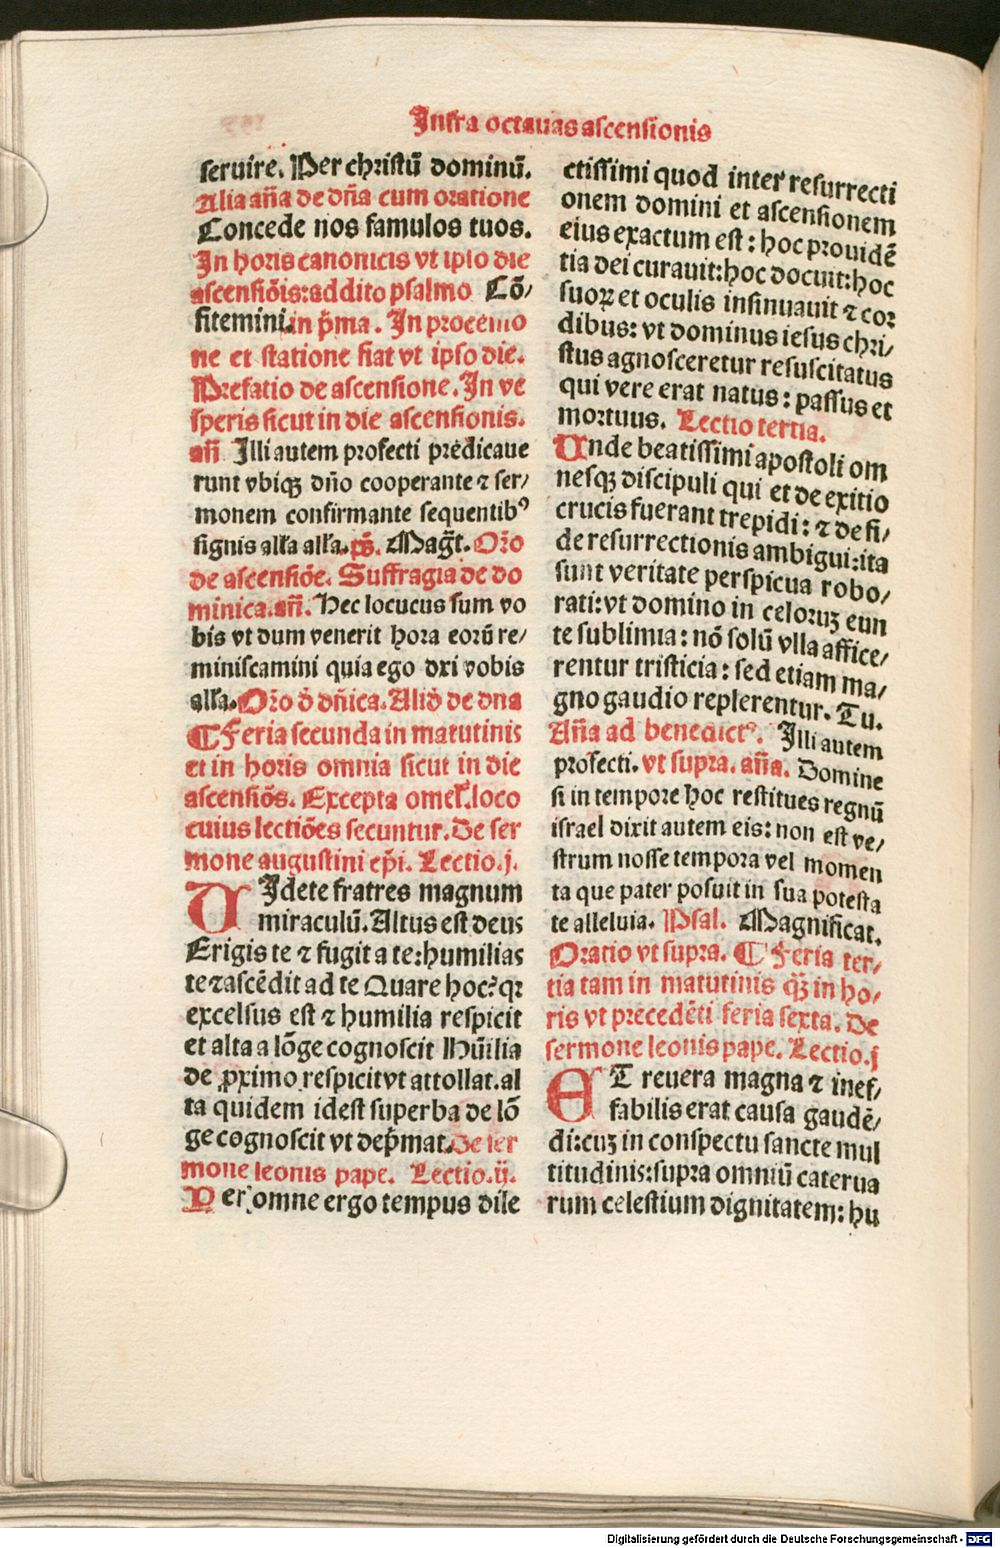 Infra octauas ascensionis
seruire. Per christū dominū.
Alia añа de dña cum oratione
Concede nos famulos tuos.
In horis canonicis vt ipso die
ascensiōis: addito psalmo Cō/
fitemini. in p̄ma. In processio
ne et statione fiat vt ipso die.
Prefatio de ascensione. In ve
speris sicut in die ascensionis.
añ Illi autem profecti predicaue
runt vbiqꝫ dño cooperante ⁊ ser/
monem confirmante sequentibꝰ
signis alľa alľa. ps̄. Mag̃t. Or̃o
de ascensiōe. Suffragia de do
minica. añ. Hec locucus sum vo
bis vt dum venerit hora eorū re/
miniscamini quia ego dxi vobis
alľa. Or̃o d̄ dñica. Aliđ de dna
¶ Feria secunda in matutinis
et in horis omnia sicut in die
ascensiōs. Excepta omeľ. loco
cuius lectiōes secuntur. De ser
mone augustini ep̄i. Lectio. j.
VIdete fratres magnum
miraculū. Altus est deus
Erigis te ⁊ fugit a te: humilias
te ⁊ ascēdit ad te Quare hoc? qꝛ
excelsus est ⁊ humilia respicit
et alta a lōge cognoscit Hūilia
de ꝓximo respicit vt attollat. al
ta quidem idest superba de lō
ge cognoscit vt dep̄mat. De ser
mone leonis pape. Lectio. ij.
Per omne ergo tempus dile
ctissimi quod inter resurrecti
onem domini et ascensionem
eius exactum est: hoc prouidē
tia dei curauit: hoc docuit: hoc
suoꝝ et oculis insinuauit ⁊ cor
dibus: vt dominus iesus chri/
stus agnosceretur resuscitatus
qui vere erat natus: passus et
mortuus. Lectio tertia.
Vnde beatissimi apostoli om
nesqꝫ discipuli qui et de exitio
crucis fuerant trepidi: ⁊ de fi/
de resurrectionis ambigui: ita
sunt veritate perspicua robo/
rati: vt domino in celoruꝫ eun
te sublimia: nō solū vlla affice/
rentur tristicia: sed etiam ma/
gno gaudio replerentur. Tu.
Aña ad benedictꝰ. Illi autem
profecti. vt supra. aña. Domine
si in tempore hoc restitues regnū
israel dixit autem eis: non est ve/
strum nosse tempora vel momen
ta que pater posuit in sua potesta
te alleluia. Psal. Magnificat.
Oratio vt supra. ¶ Feria ter/
tia tam in matutinis qꝫ in ho/
ris vt precedēti feria sexta. De
sermone leonis pape. Lectio. j
ET reuera magna ⁊ inef/
fabilis erat causa gaudē/
di: cuꝫ in conspectu sancte mul
titudinis: supra omniū caterua
rum celestium dignitatem: hu
Digitalisierung gefördert durch die Deutsche Forschungsgemeinschaft - DFG